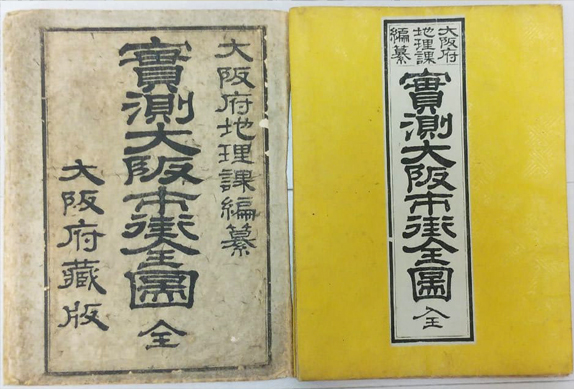 大阪府地理課編纂
實測大阪市街全圖 全
大阪府藏版
大阪府
地理課
編纂
實測大阪市街全圖 全